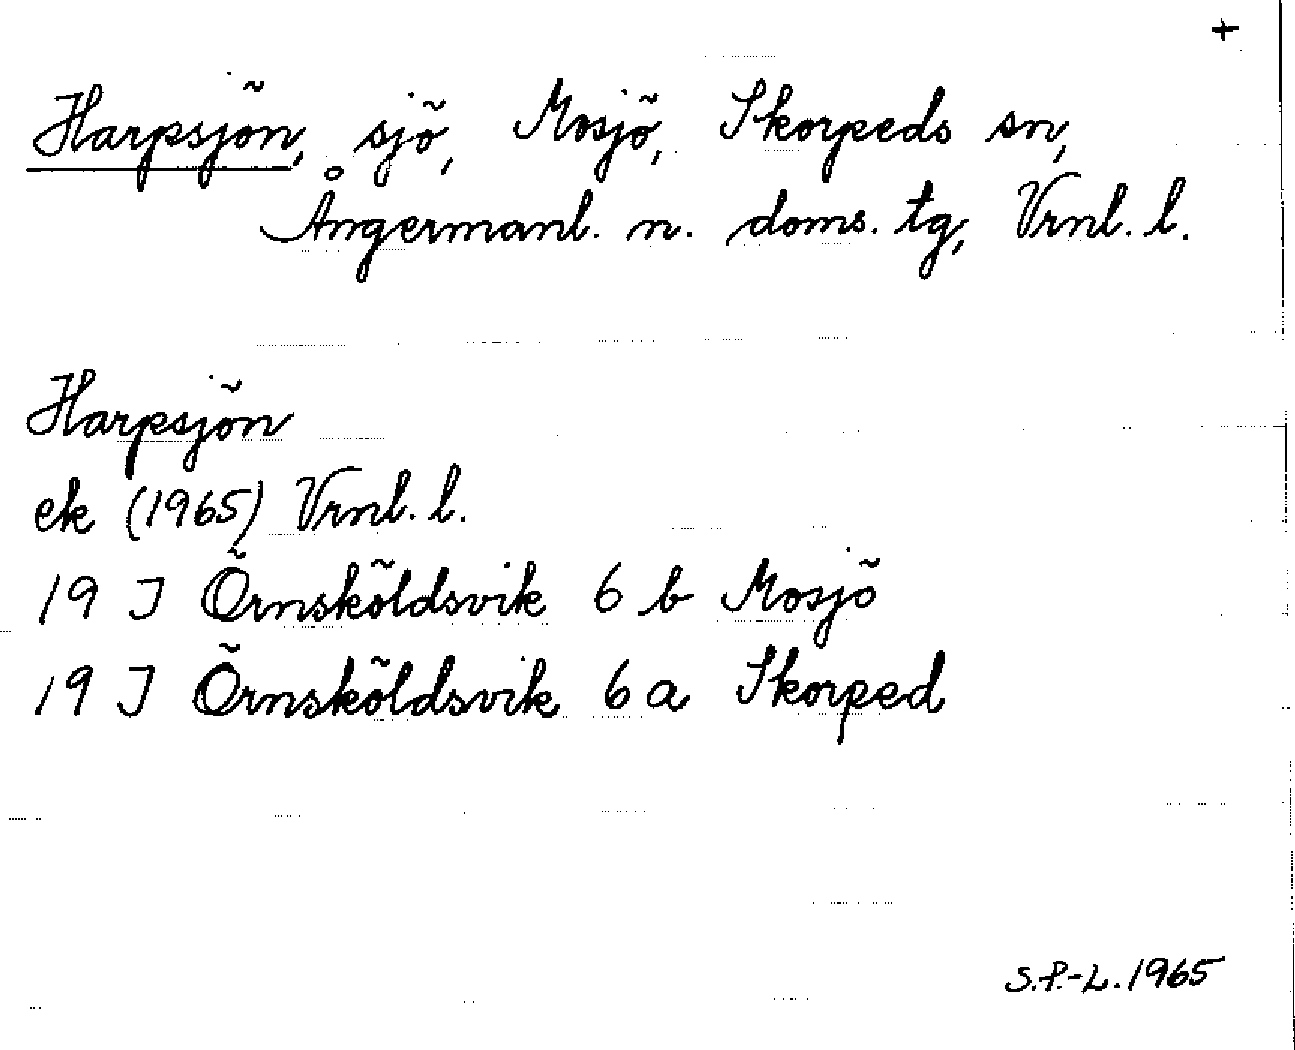 +
Harpsjön, sjö, Mosjö, Skorpeds sn,
Ångermanl. n. doms. tg, Vrnl. l.
Harpsjön
ek (1965) Vrnl. l.
19 J Örnsköldsvik 6 b Mosjö
19 J Örnsköldsvik 6 a Skorped
S.P.-L. 1965